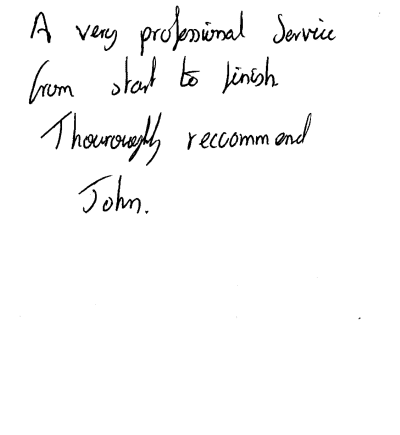 A very professional Service
from start to finish
Thouroughly reccommend
John.